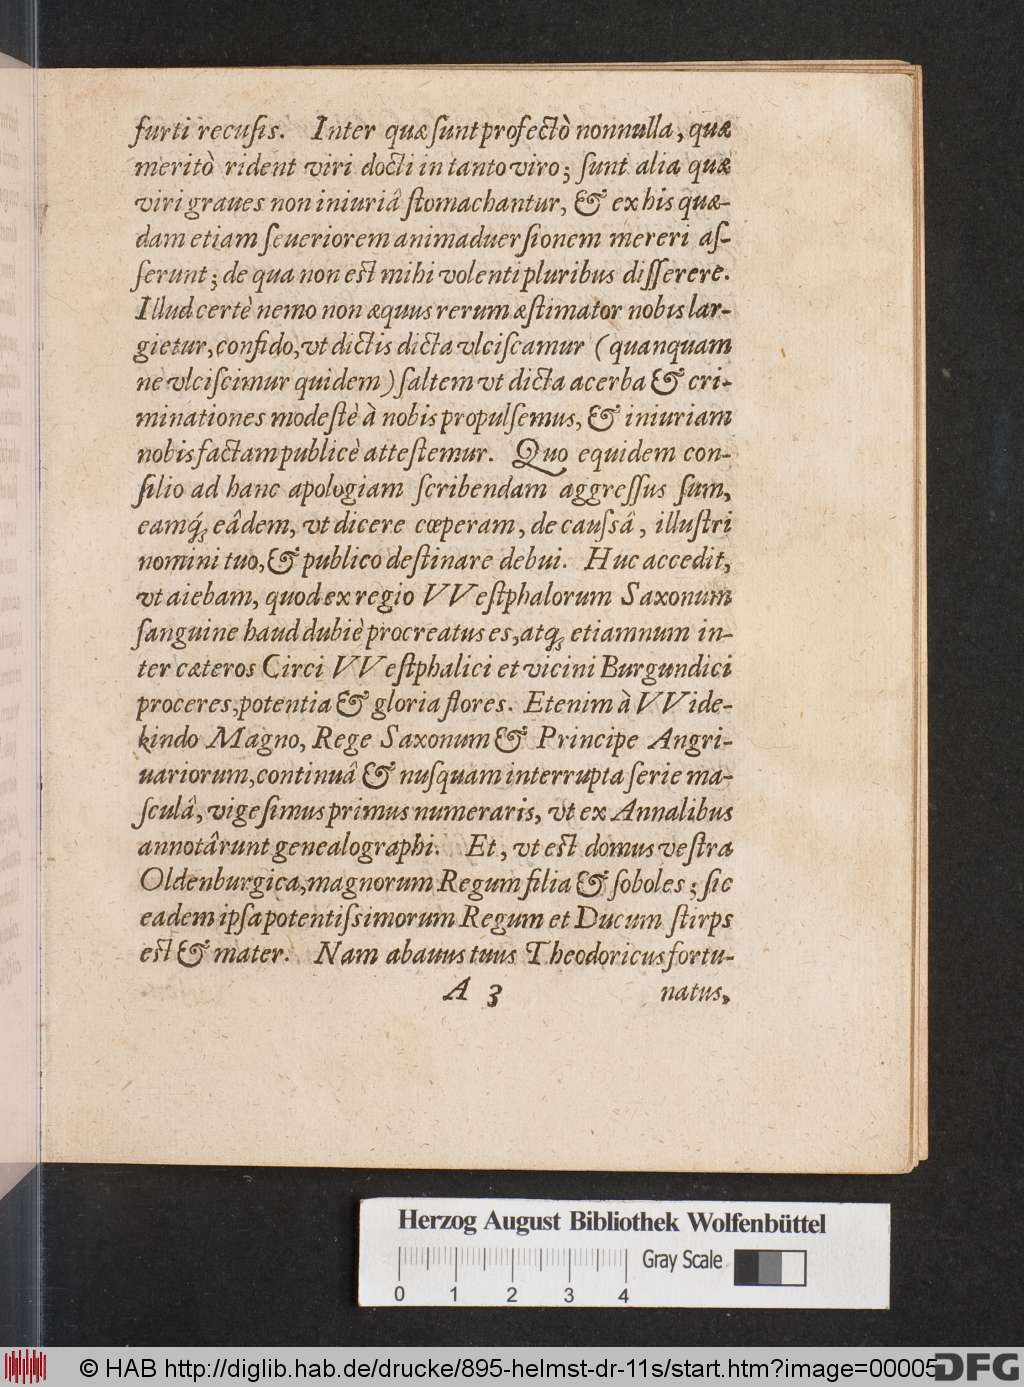 furti recusis. Inter quæ sunt profectò nonnulla, quæ
meritò rident viri docti in tanto viro; sunt alia quæ
viri graues non iniuriâ stomachantur, & ex his quæ-
dam etiam seueriorem animaduersionem mereri as-
serunt; de qua non est mihi volenti pluribus disserere.
Illud certè nemo non æquus rerum æstimator nobis lar-
gietur, confido, vt dictis dicta vlciscamur (quanquam
ne vlciscimur quidem) saltem vt dicta acerba & cri-
minationes modestè à nobis propulsemus, & iniuriam
nobis factam publicè attestemur. Quo equidem con-
silio ad hanc apologiam scribendam aggressus sum,
eamq́; eâdem, vt dicere cœperam, de caussâ, illustri
nomini tuo, & publico destinare debui. Huc accedit,
vt aiebam, quod ex regio VVestphalorum Saxonum
sanguine haud dubiè procreatus es, atq; etiamnum in-
ter cæteros Circi VVestphalici et vicini Burgundici
proceres, potentia & gloria flores. Etenim à VVide-
kindo Magno, Rege Saxonum & Principe Angri-
uariorum, continuâ & nusquam interrupta serie ma-
sculâ, vigesimus primus numeraris, vt ex Annalibus
annotârunt genealographi. Et, vt est domus vestra
Oldenburgica, magnorum Regum filia & soboles; sic
eadem ipsa potentissimorum Regum et Ducum stirps
est & mater. Nam abauus tuus Theodoricus fortu-
A 3 natus,
Herzog August Bibliothek Wolfenbüttel
Gray Scale
0 1 2 3 4
© HAB http://diglib.hab.de/drucke/895-helmst-dr-11s/start.htm?image=00005
DFG